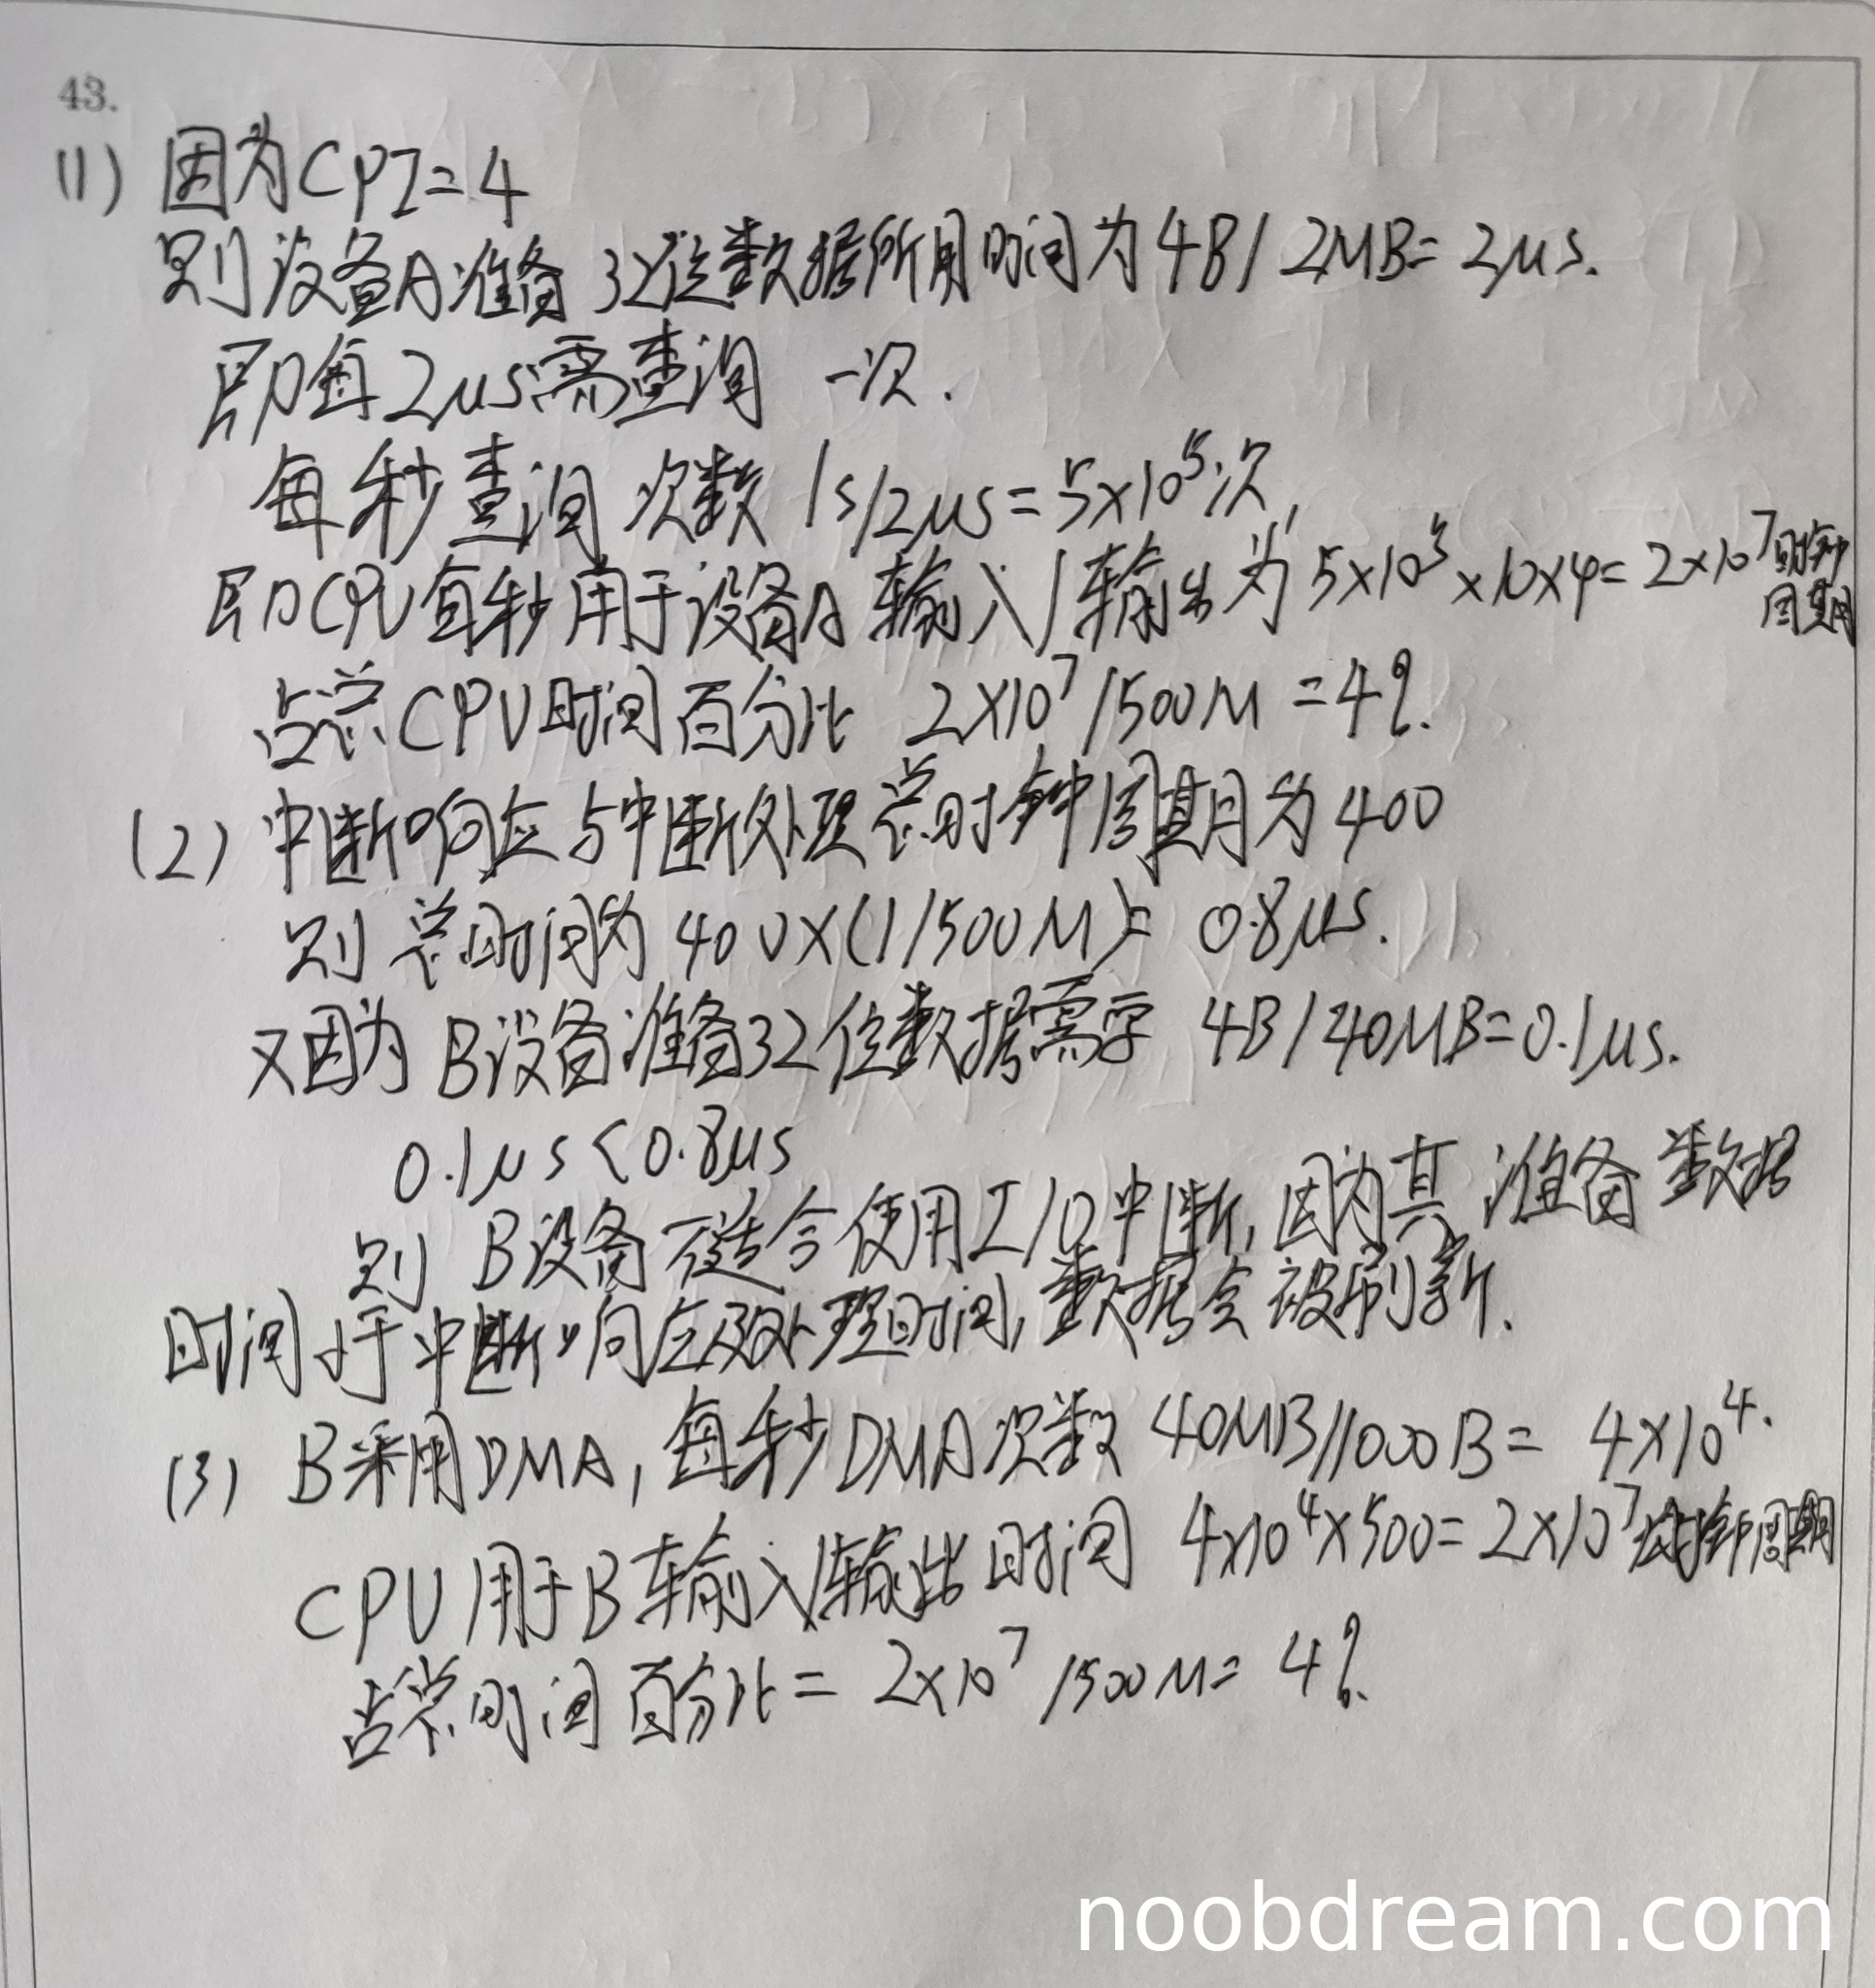 43.
(1) 因为CPI=4
则设备A准备32位数据所用时间为4B/2MB=2μs.
即每2μs需查询一次.
每秒查询次数1s/2μs=5×10⁵次,
即CPU每秒用于设备A输入/输出为5×10⁵×10×4=2×10⁷时钟周期
占总CPU时间百分比 2×10⁷/500M=4%.
(2) 中断响应与中断处理总时钟周期为400
则总时间为400×(1/500M)=0.8μs.
又因为B设备准备32位数据需要 4B/40MB=0.1μs.
0.1μs<0.8μs
则B设备不适合使用I/O中断,因为其准备数据
时间小于中断响应及处理时间,数据会被刷新.
(3) B采用DMA,每秒DMA次数40MB/1000B=4×10⁴.
CPU用于B输入/输出时间 4×10⁴×500=2×10⁷时钟周期
占总时间百分比=2×10⁷/500M=4%.
noobdream.com